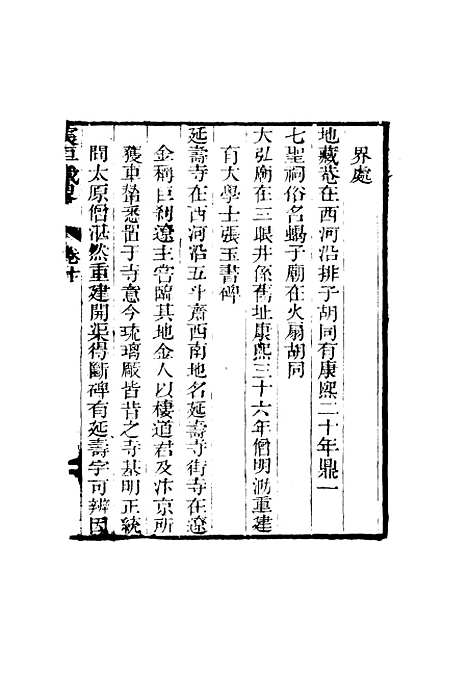 界處
地藏菴在西河沿排子胡同有康熙二十年鼎一
七聖祠俗名蝎子廟在火扇胡同
大弘廟在三眼井係舊址康熙三十六年僧明泐重建
有大學士張玉書碑
延壽寺在西河沿五斗齋西南地名延壽寺街寺在遼
金稱巨剎遼主嘗臨其地金人以棲道君及汴京所
獲車輦悉置于寺意今琉璃厰皆昔之寺基明正統
間太原僧湛然重建開渠得斷碑有延壽字可辨因
宸垣識畧 卷十